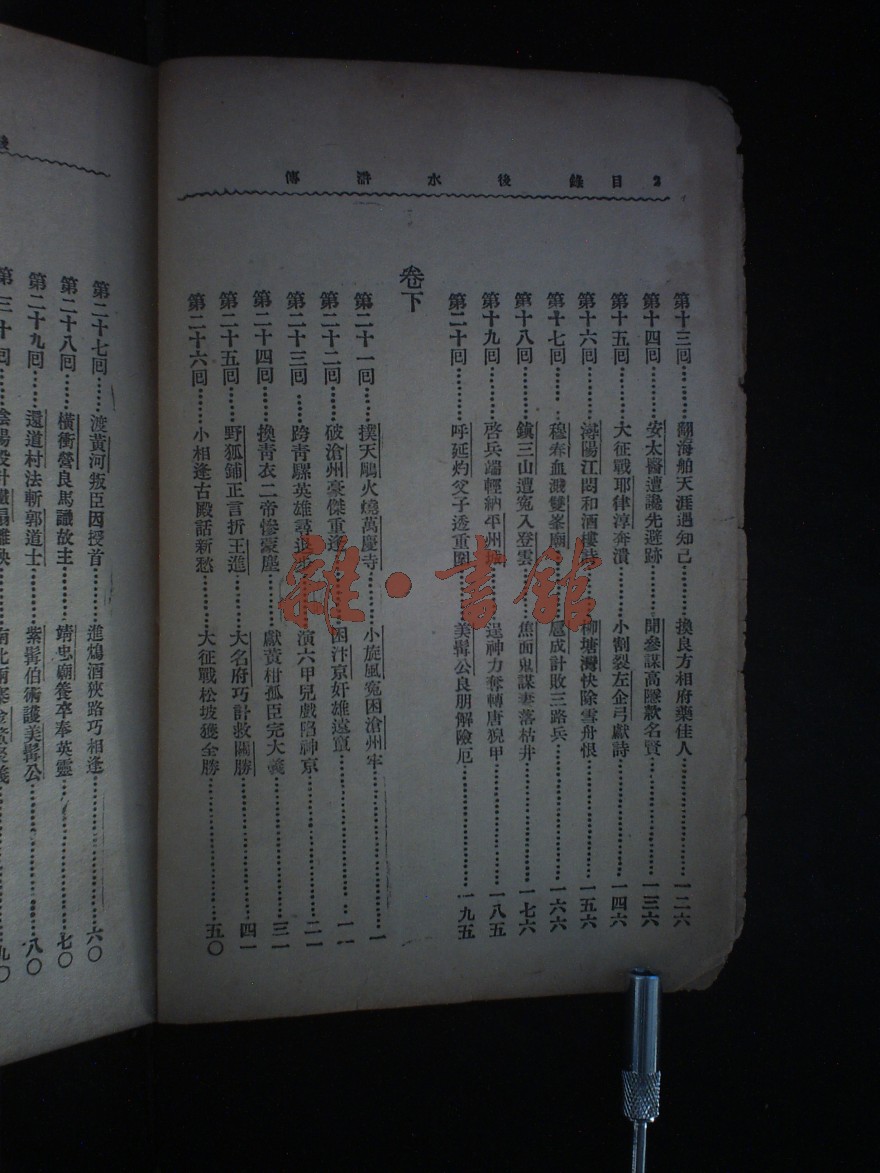 傳 滸 水 後 錄目 2
第十三回……翻海舶天涯遇知己……換良方相府藥佳人……一二六
第十四回……安太醫遭讒先避跡……聞參謀高隱款名賢……一三六
第十五回……大征戰耶律淳奔潰……小割裂左企弓獻詩……一四六
第十六回……潯陽江悶和酒樓詩……柳塘灣快除雪舟恨……一五六
第十七回……穆春血濺雙峯廟……扈成計敗三路兵……一六六
第十八回……鎮三山遭冤入登雲……焦面鬼謀妻落枯井……一七六
第十九回……啓兵端輕納平州……逞神力奪轉唐猊甲……一八五
第二十回……呼延灼父子透重圍……美髯公良朋解險厄……一九五
卷下
第二十一回……撲天鵰火燒萬慶寺……小旋風冤困滄州牢……一
第二十二回……破滄州豪傑重逢……困汴京奸雄遠竄……一一
第二十三回……跨青騾英雄尋……演六甲兒戲陷神京……二一
第二十四回……換青衣二帝慘蒙塵……獻黃柑孤臣完大義……三一
第二十五回……野狐鋪正言折王進……大名府巧計救關勝……四一
第二十六回……小相逢古殿話新愁……大征戰松坡獲全勝……五〇
第二十七回……渡黃河叛臣因授首……進鴆酒狹路巧相逢……六〇
第二十八回……橫衝營良馬識故主……靖忠廟養卒奉英靈……七〇
第二十九回……還道村法斬郭道士……紫髯伯術護美髯公……八〇
第三十回……陰陽設計……九〇